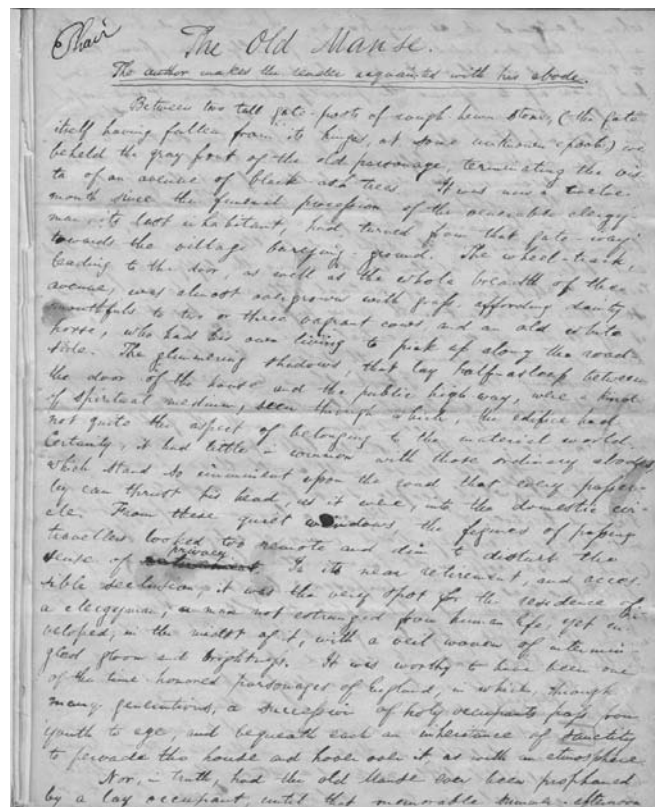 Phair
The Old Manse.
The author makes the reader acquainted with his abode.
Between two tall gate-posts of rough hewn stone, (the gate
itself having fallen from its hinges, at some unknown epoch,) we
beheld the gray front of the old parsonage, terminating the vis-
ta of an avenue of black ash trees. It was now a twelve-
month since the funeral procession of the venerable clergy-
man, its last inhabitant, had turned from that gate-way
towards the village burying-ground. The wheel-track,
leading to the door, as well as the whole breadth of the
avenue, was almost overgrown with grass affording dainty
mouthfuls to two or three vagrant cows, and an old white
horse, who had his own living to pick up along the road-
side. The glimmering shadows, that lay half-asleep between
the door of the house and the public highway, were a kind
of spiritual medium, seen through which, the edifice had
not quite the aspect of belonging to the material world.
Certainly, it had little in common with those ordinary abodes,
which stand so imminent upon the road that every passer-
by can thrust his head, as it were, into the domestic cir-
cle. From these quiet windows, the figures of passing
travellers looked too remote and dim to disturb the
sense of privacy. In its near retirement, and acces-
sible seclusion, it was the very spot for the residence of
a clergyman; a man not estranged from human life, yet en-
veloped, in the midst of it, with a veil woven of intermin-
gled gloom and brightness. It was worthy to have been one
of the time-honored parsonages of England, in which, through
many generations, a succession of holy occupants pass from
youth to age, and bequeath each an inheritance of sanctity
to pervade the house and hover over it, as with an atmosphere.
Nor, in truth, had the old Manse ever been prophaned
by a lay occupant, until that memorable summer-afternoon